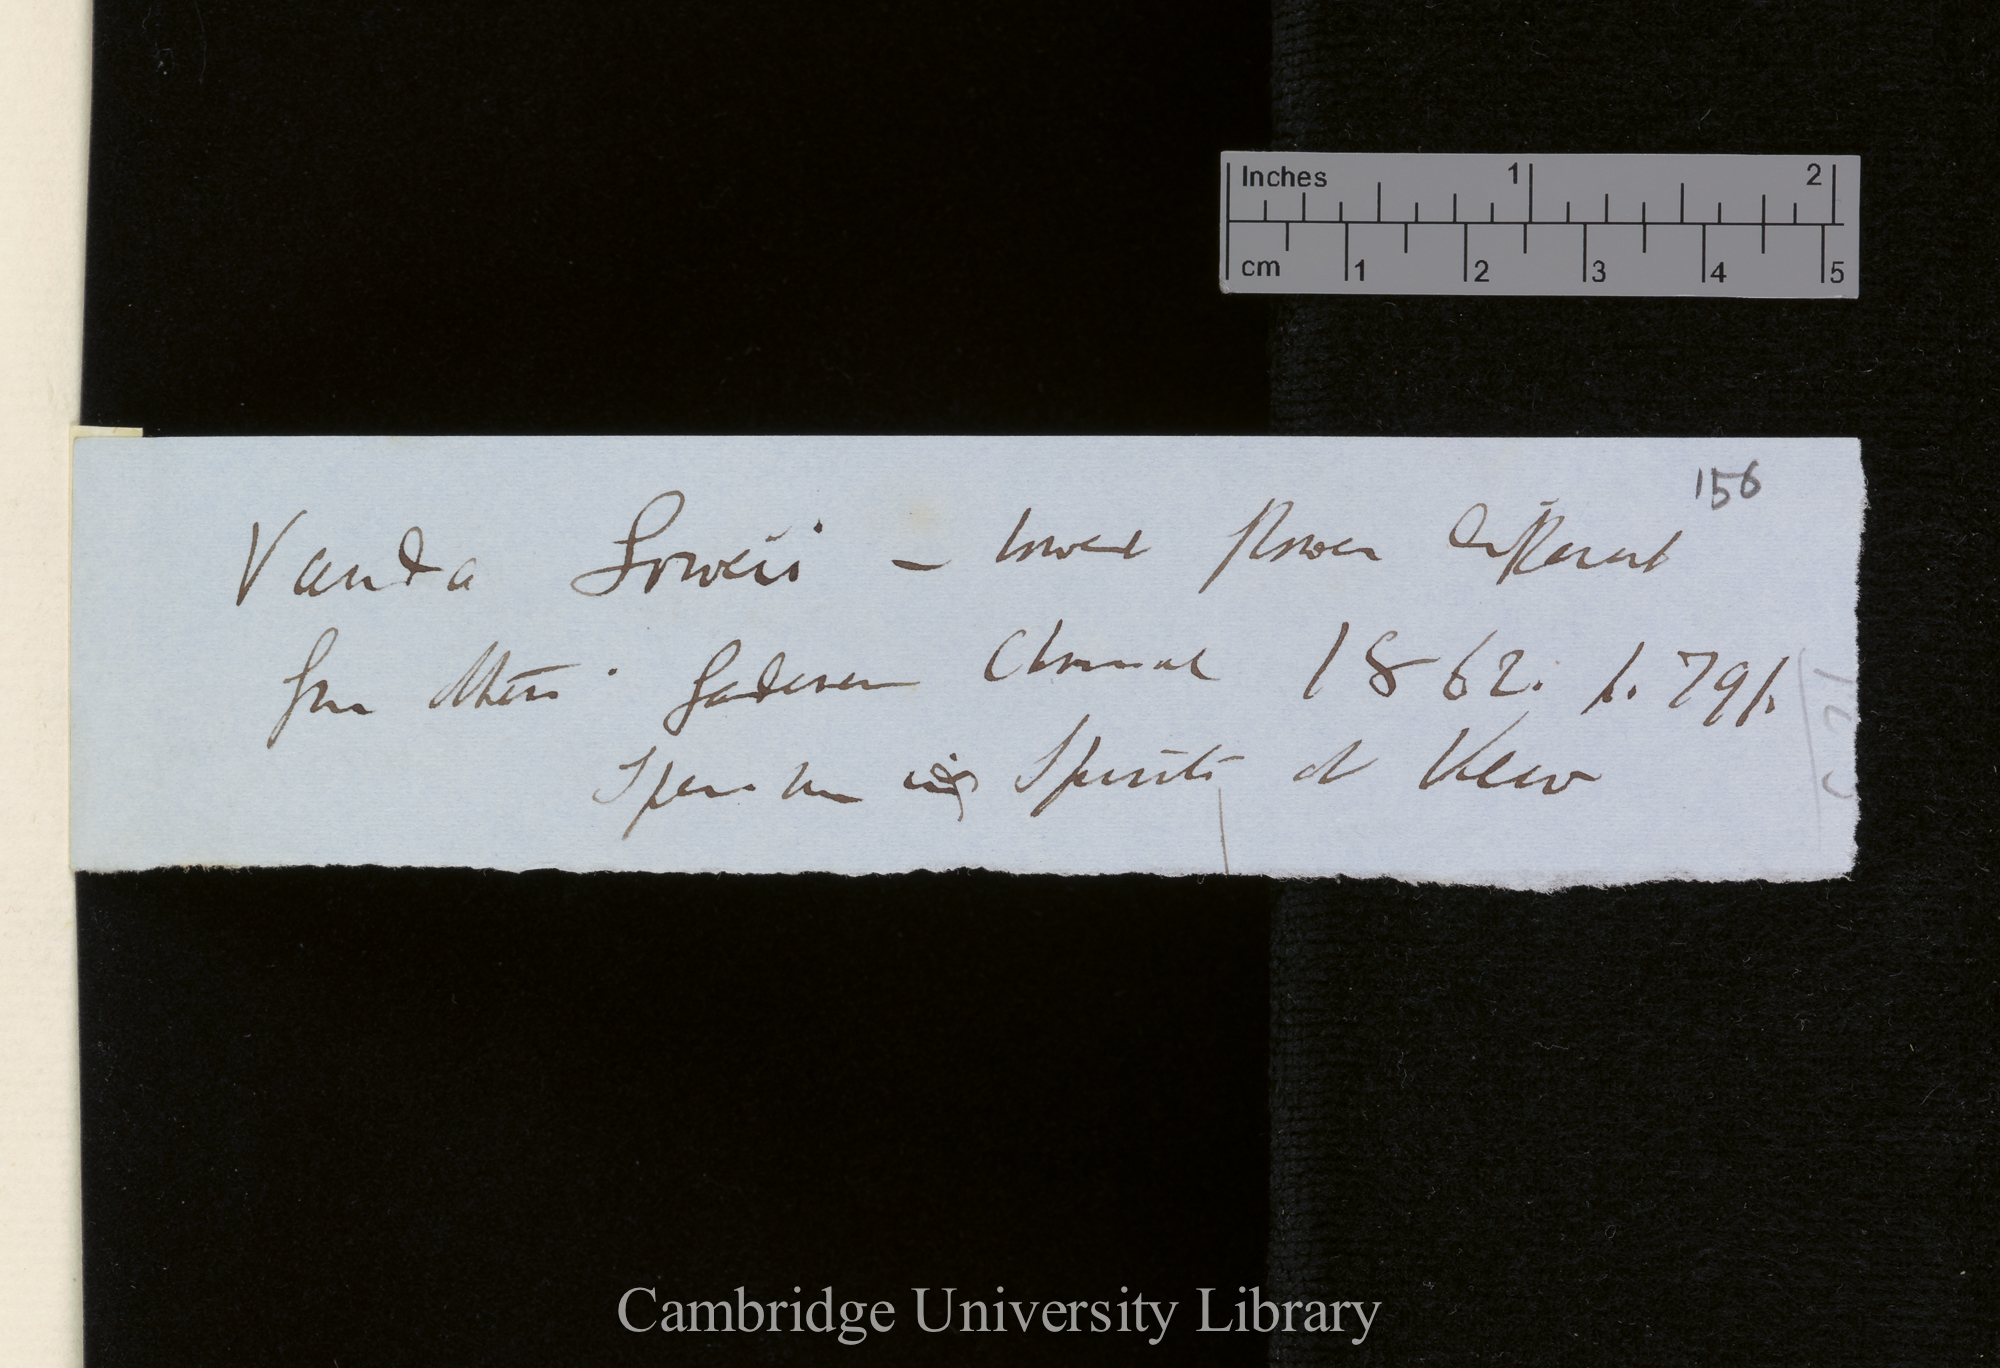 Inches 1 2
cm 1 2 3 4 5
156
Vanda Lowei – lowest flower different
from others. Gardeners Chronicle 1862. p. 791.
Specimen in Spirits at Kew
Cambridge University Library